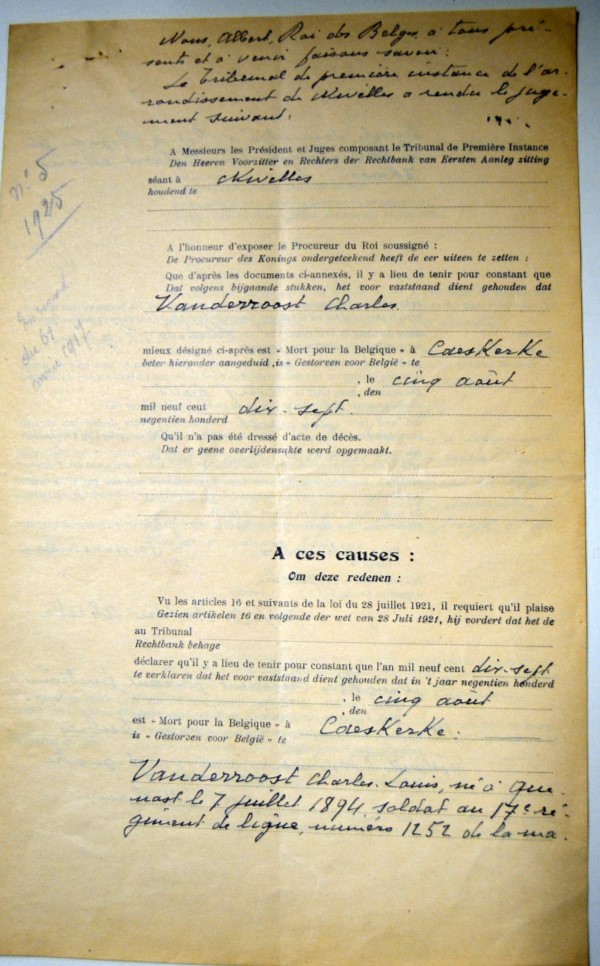 Nous, Albert, Roi des Belges, à tous pré-
sents et à venir faisons savoir:
Le Tribunal de première instance de l'ar-
rondissement de Nivelles a rendu le juge-
ment suivant.
n: 5
1925
A Messieurs les Président et Juges composant le Tribunal de Première Instance
Den Heeren Voorzitter en Rechters der Rechtbank van Eersten Aanleg zitting
séant à Nivelles
houdend te
A l'honneur d'exposer le Procureur du Roi soussigné :
De Procureur des Konings ondergeteekend heeft de eer uiteen te zetten :
Que d'après les documents ci-annexés, il y a lieu de tenir pour constant que
Dat volgens bijgaande stukken, het voor vaststaand dient gehouden dat
Vanderroost Charles.
du
1917
mieux désigné ci-après est « Mort pour la Belgique » à Caeskerke
beter hieronder aangeduid ,is « Gestorven voor België » te
, le cinq août
, den
mil neuf cent dix-sept.
negentien honderd
Qu'il n'a pas été dressé d'acte de décès.
Dat er geene overlijdensakte werd opgemaakt.
A ces causes :
Om deze redenen :
Vu les articles 16 et suivants de la loi du 28 juillet 1921, il requiert qu'il plaise
Gezien artikelen 16 en volgende der wet van 28 Juli 1921, hij vordert dat het de
au Tribunal
Rechtbank behage
déclarer qu'il y a lieu de tenir pour constant que l'an mil neuf cent dix-sept
te verklaren dat het voor vaststaand dient gehouden dat in 't jaar negentien honderd
, le cinq août
, den
est « Mort pour la Belgique » à Caeskerke.
is « Gestorven voor België » te
Vanderroost Charles-Louis, né à Que-
nast le 7 juillet 1894, soldat au 17e ré-
giment de ligne, numéro 1252 de la ma-